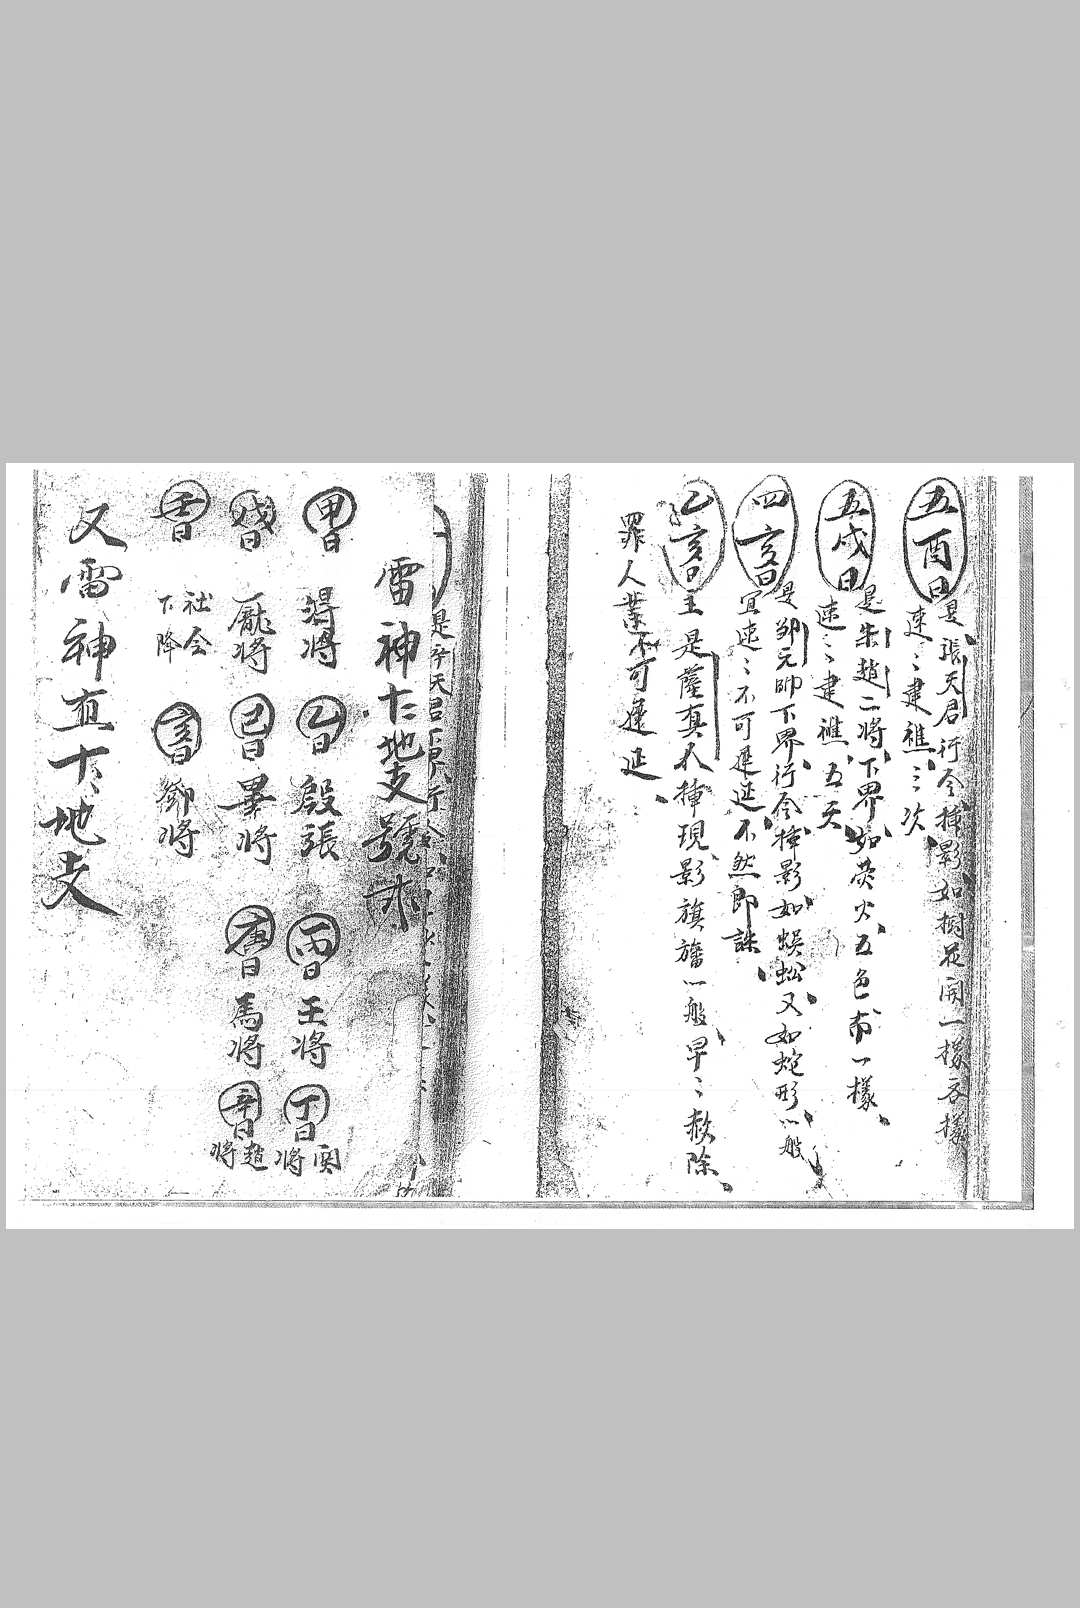 五酉日
是張天君行令揷影如樹花開一樣各樣
速々建醮三次
五戌日
是朱趙二將下界如荧火五色布一樣
速々建醮五天
四亥日
是鄧元帥下界行令揷影如蜈蚣又如蛇形一般
宜速々不可遲延不然即誅
乙亥日
王是薩真人揷現影旗旛一般早々赦除
罪人業不可遲延
雷神十二地支號
甲日 將 乙日 殷張 丙日 王將 丁日 関將
戊日 龐將 己日 畢將 庚日 馬將 辛日 趙將
壬日 社令下降 亥日 鄧將
又雷神直十二地支